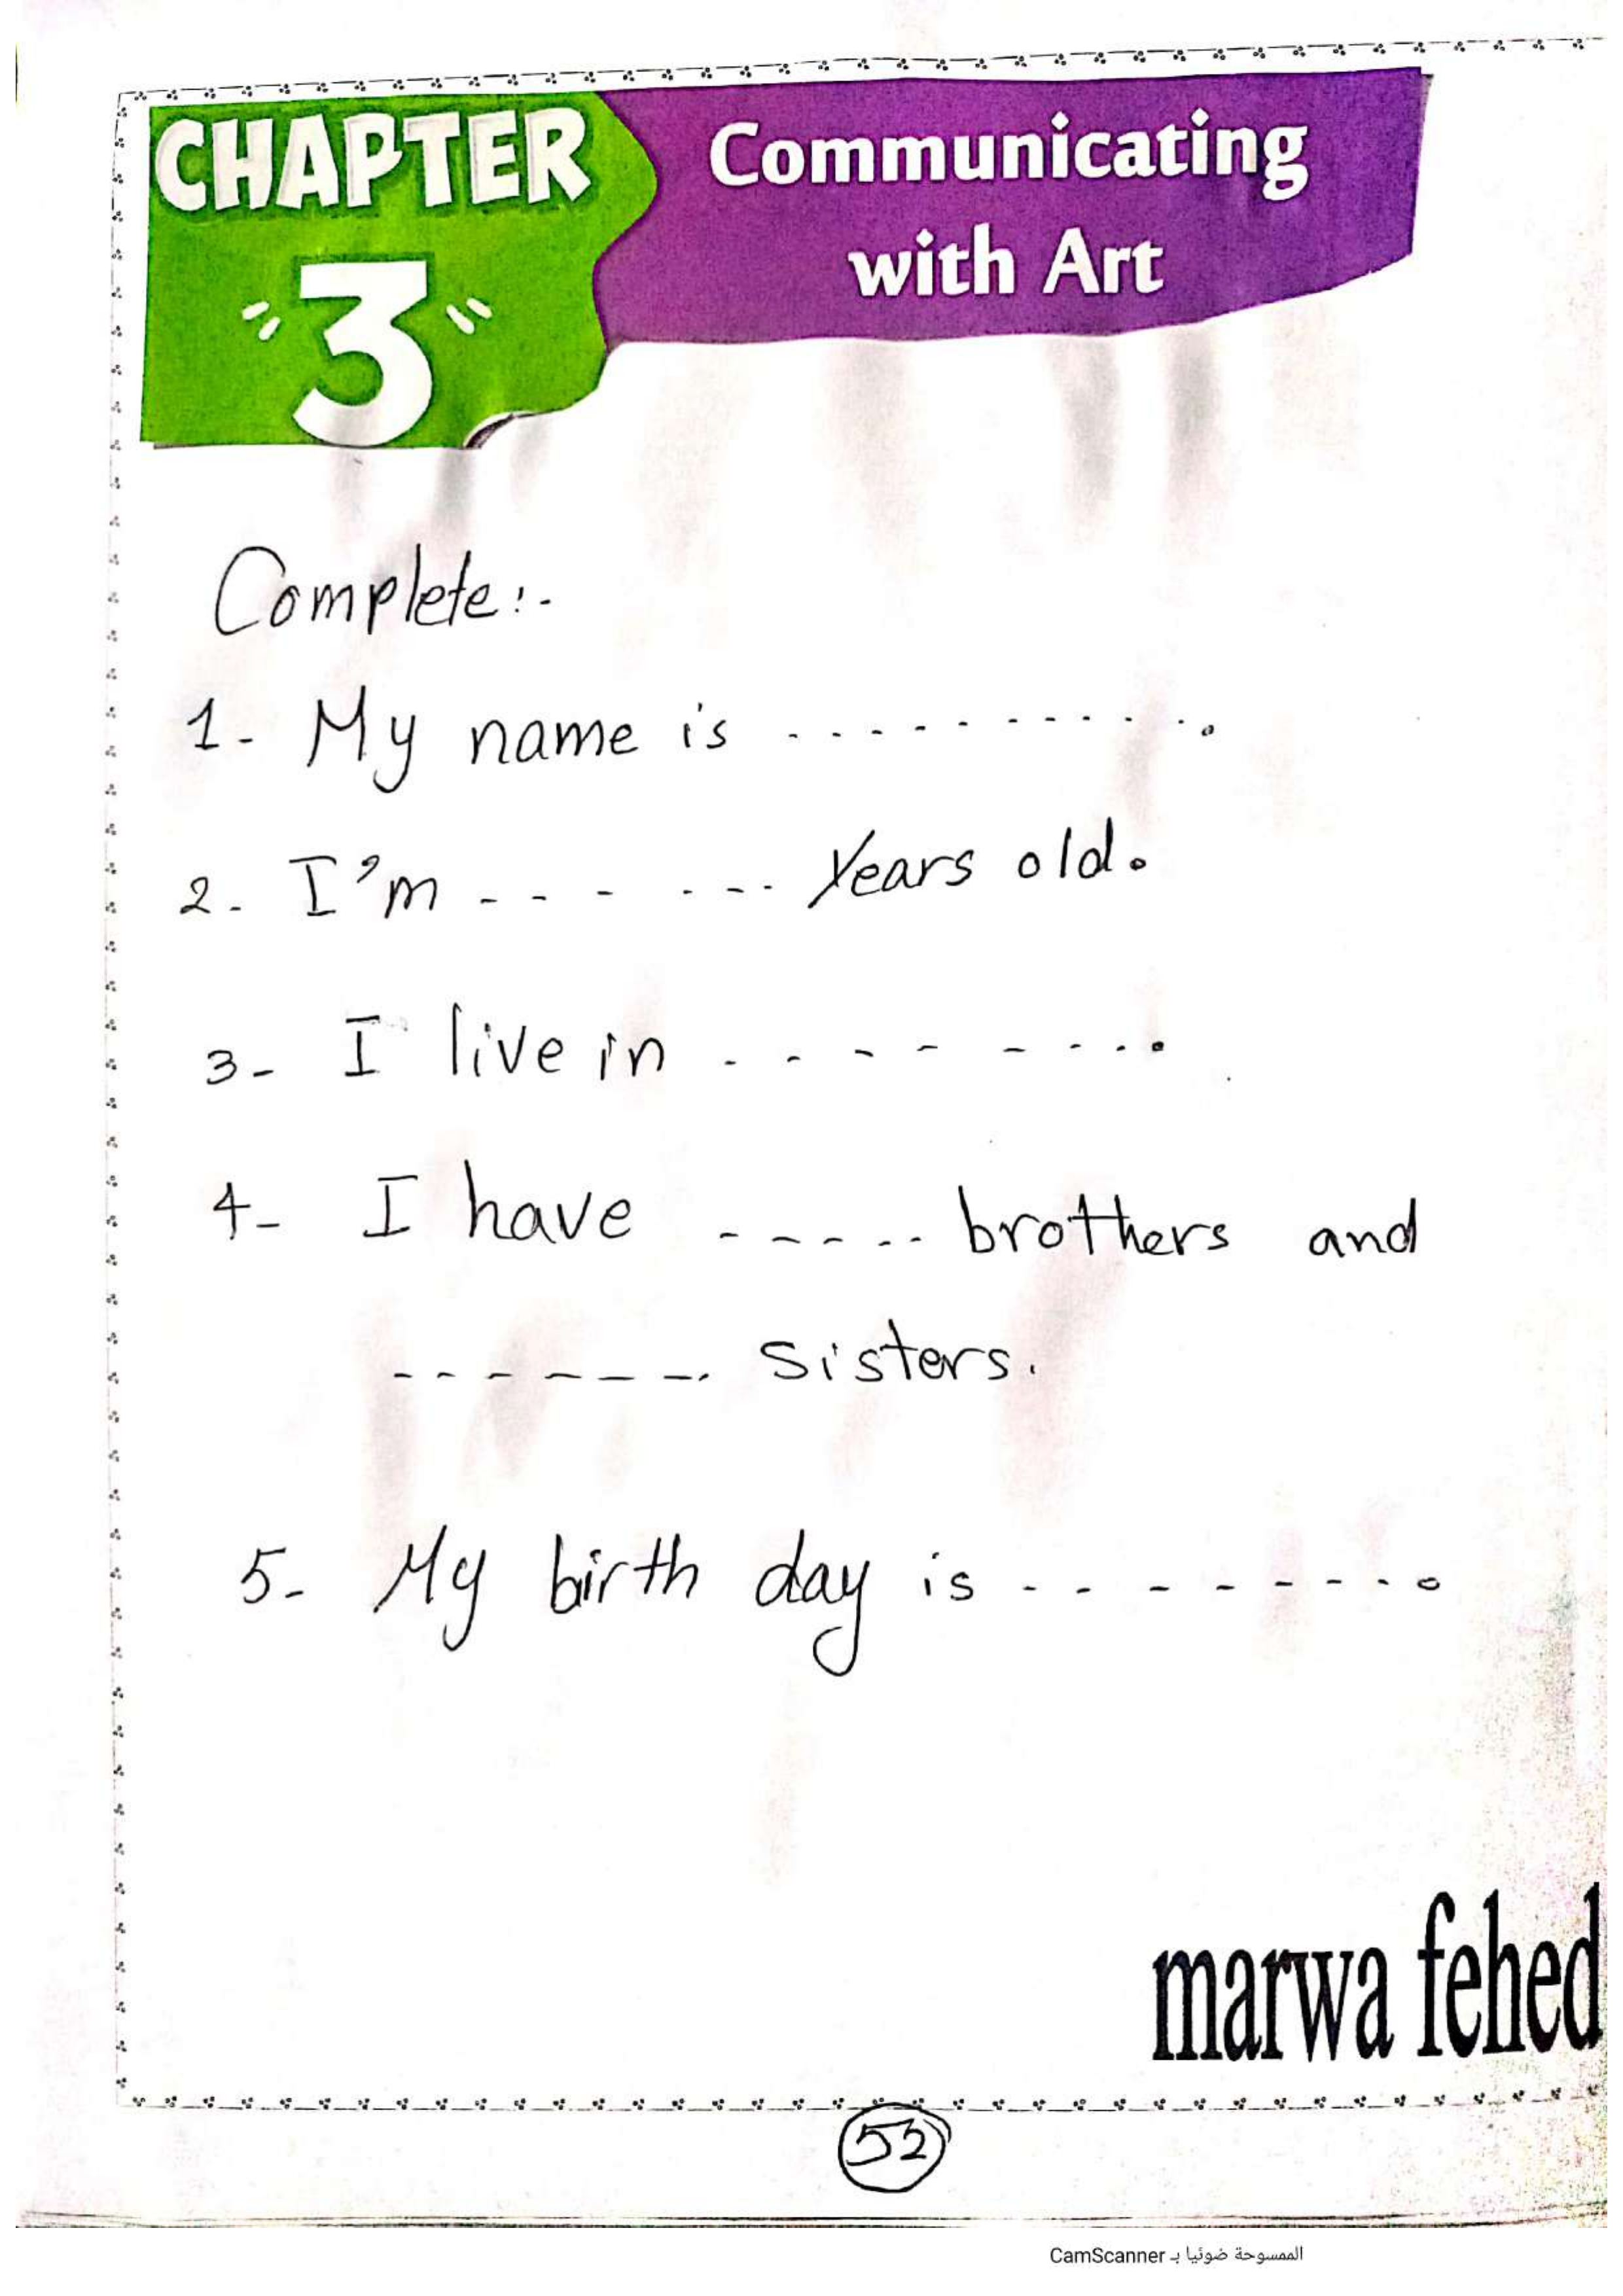 CHAPTER
3
Communicating
with Art
Complete:-
1- My name is ...........
2- I'm ------- Years old.
3- I live in ---------.
4- I have ------ brothers and
------- sisters.
5- My birth day is --------.
marwa fehed
52
الممسوحة ضوئيا بـ CamScanner